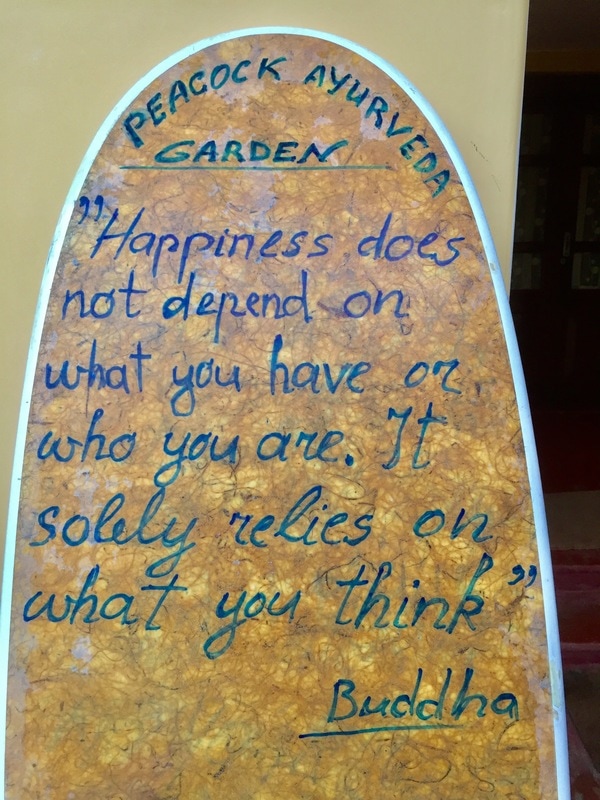 PEACOCK AYURVEDA
GARDEN
"Happiness does
not depend on
what you have or
who you are. It
solely relies on
what you think"
Buddha